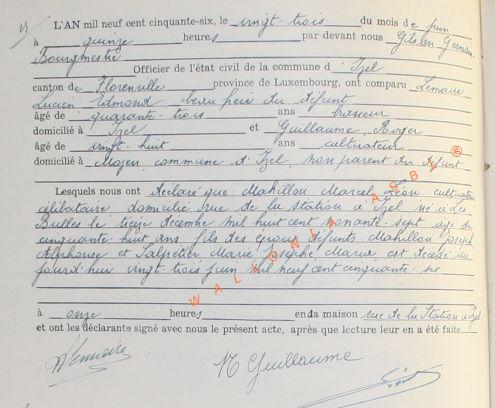 L'AN mil neuf cent cinquante-six, le vingt-trois du mois de juin
à quinze heures par devant nous Gilsen Germain
Bourgmestre
Officier de l'état civil de la commune d'Izel
canton de Florenville province de Luxembourg, ont comparu Lemaire
Lucien Edmond beau frère du défunt
âgé de quarante-trois ans brasseur
domicilié à Izel et Guillaume Roger
âgé de vingt-huit ans cultivateur
domicilié à Moyen commune d'Izel, non parent du défunt
Lesquels nous ont déclaré que Mahillon Marcel Léon cultivateur
célibataire domicilié rue de la station à Izel né à Les
Bulles le treize décembre mil huit cent nonante-sept âgé de
cinquante huit ans fils des époux défunts Mahillon Joseph
Alphonse et Salpetier Marie Josèphe Maria est décédé
jourd'hui vingt-trois juin mil neuf cent cinquante-six
à onze heures en sa maison rue de la Station à Izel
et ont les déclarants signé avec nous le présent acte, après que lecture leur en a été faite
Lemaire
R Guillaume
WALLONIA ASBL ®